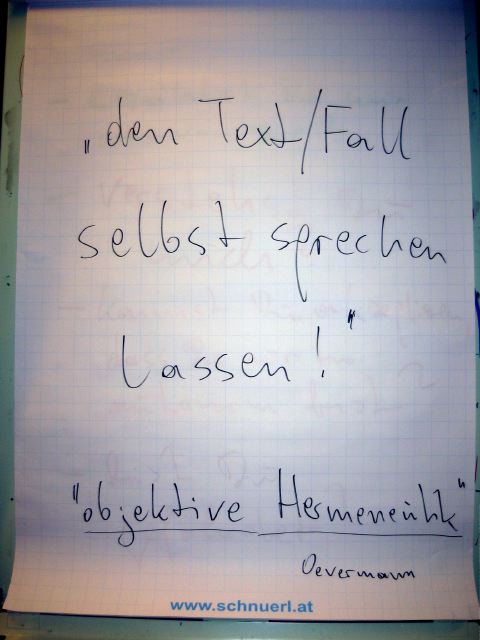 „den Text/Fall
selbst sprechen
lassen!"
"objektive Hermeneutik"
Oevermann
www.schnuerl.at